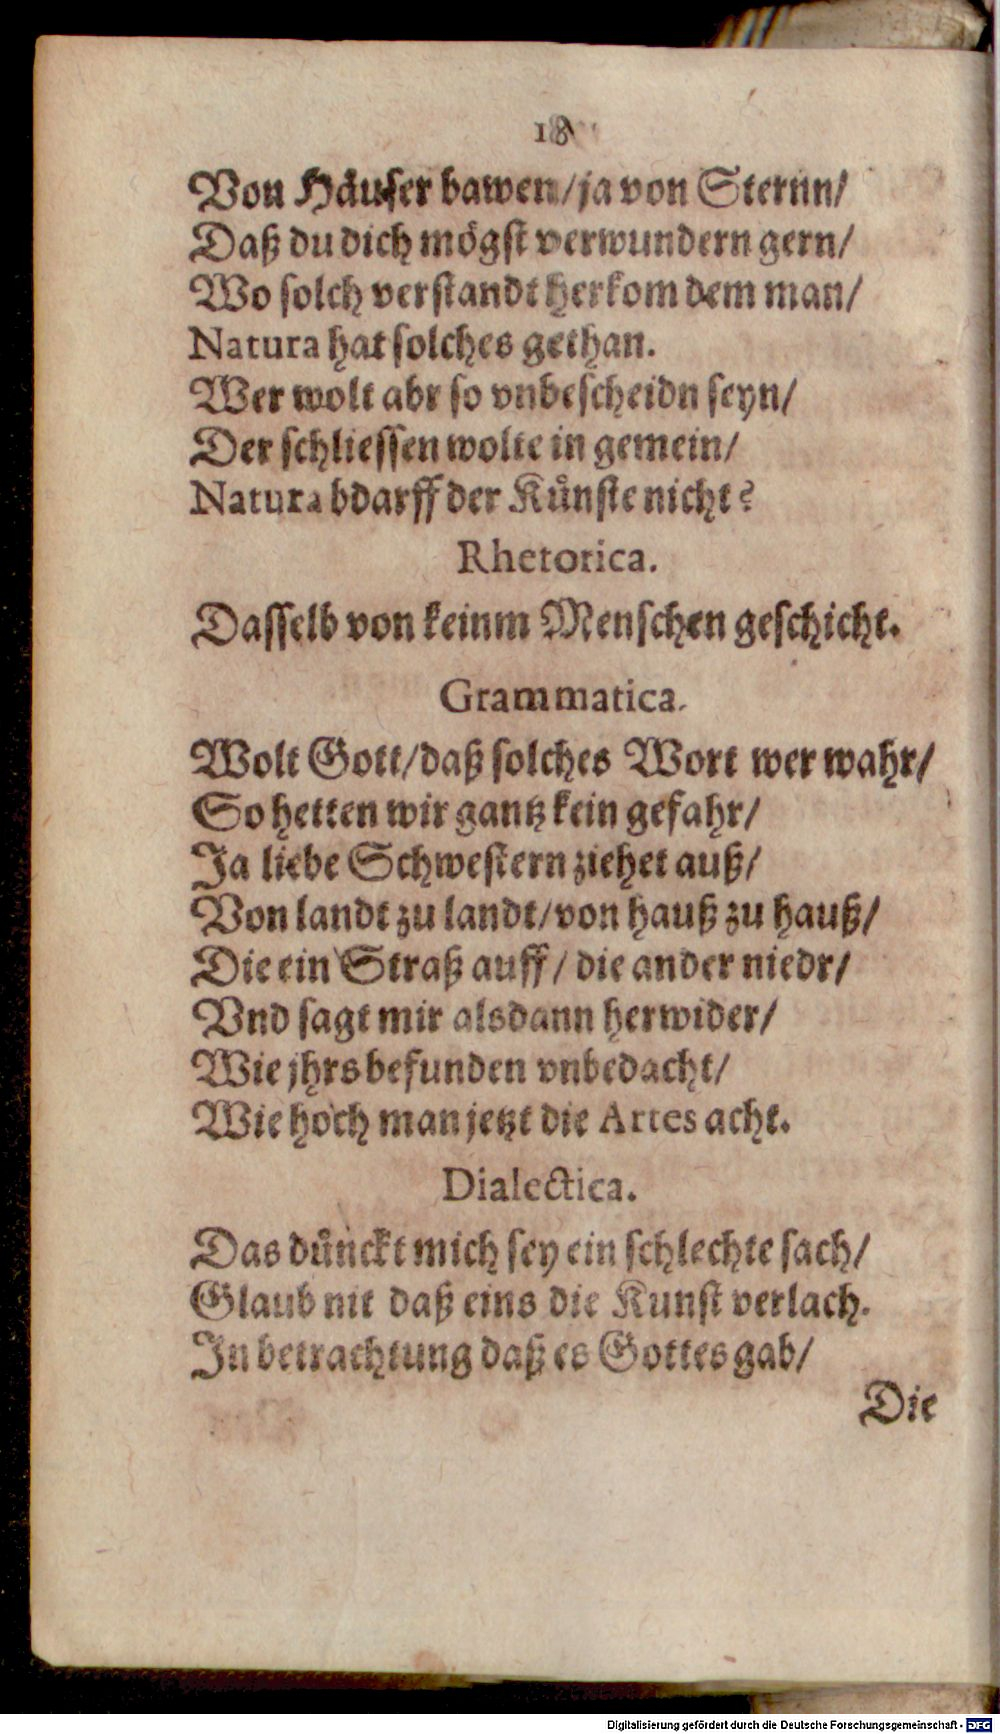 18
Von Häuser bawen/ja von Sternn/
Daß du dich mögst verwundern gern/
Wo solch verstandt herkom dem man/
Natura hat solches gethan.
Wer wolt abr so vnbescheidn seyn/
Der schliessen wolte in gemein/
Natura bdarff der Kuͤnste nicht?
Rhetorica.
Dasselb von keinm Menschen geschicht.
Grammatica.
Wolt Gott/daß solches Wort wer wahr/
So hetten wir gantz kein gefahr/
Ja liebe Schwestern ziehet auß/
Von landt zu landt/von hauß zu hauß/
Die ein Straß auff/ die ander niedr/
Vnd sagt mir alsdann herwider/
Wie jhrs befunden vnbedacht/
Wie hoch man jetzt die Artes acht.
Dialectica.
Das duͤnckt mich sey ein schlechte sach/
Glaub nit daß eins die Kunst verlach.
In betrachtung daß es Gottes gab/
Die
Digitalisierung gefördert durch die Deutsche Forschungsgemeinschaft - DFG